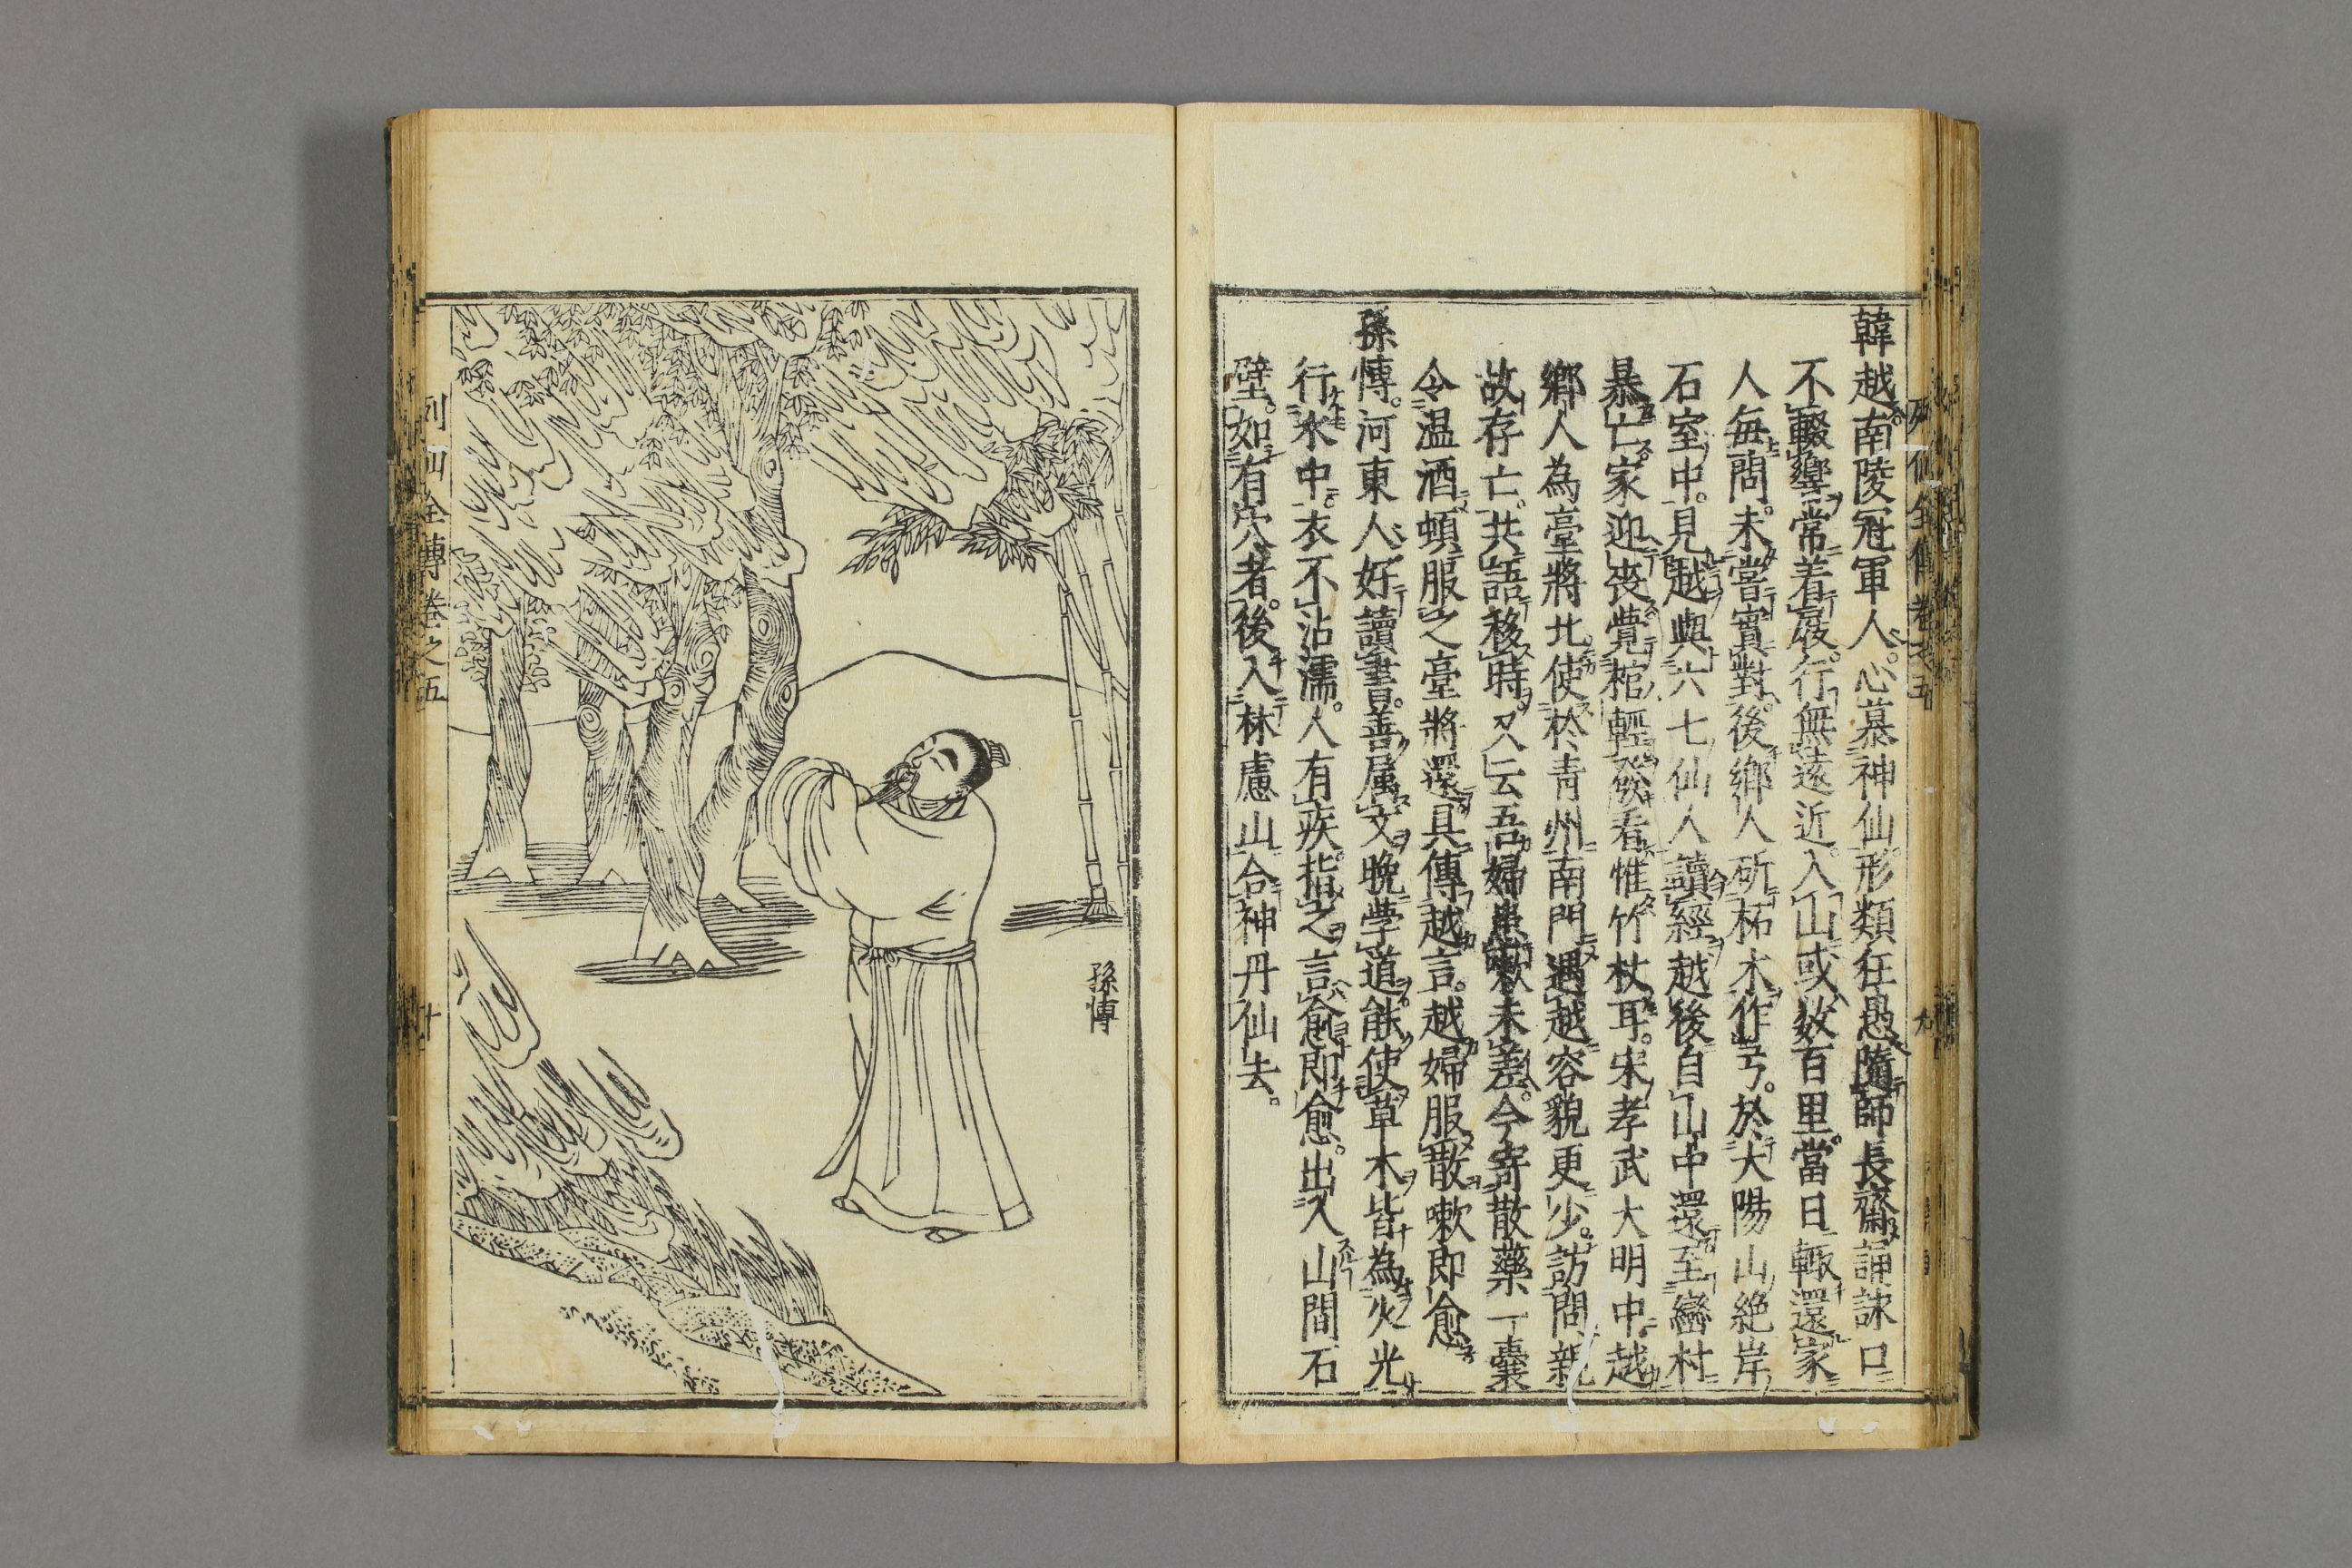 列仙全傳卷之五
九
韓越南陵冠軍人心慕神仙形類狂愚隨師長齋誦詠口
不輟響常着屐行無遠近入山或数百里當日輙還家
人毎問未嘗實對後鄉人斫柘木作弓於大陽山絶岸
石室中見越與六七仙人讀經越後自山中還至巒村
暴亡家迎喪覺棺輕發看惟竹杖耳宋孝武大明中越
鄉人為臺將北使於青州南門遇越容貌更少訪問親
故存亡共語移時又云吾婦患嗽未差今寄散藥一囊
令温酒頓服之臺將還具傳越言越婦服散嗽即愈
孫慱河東人好讀書善属文晩學道能使草木皆為火光
行水中衣不沾濡人有疾指之言愈即愈出入山間石
壁如有穴者後入林慮山合神丹仙去
孫慱
列仙全傳卷之五
十